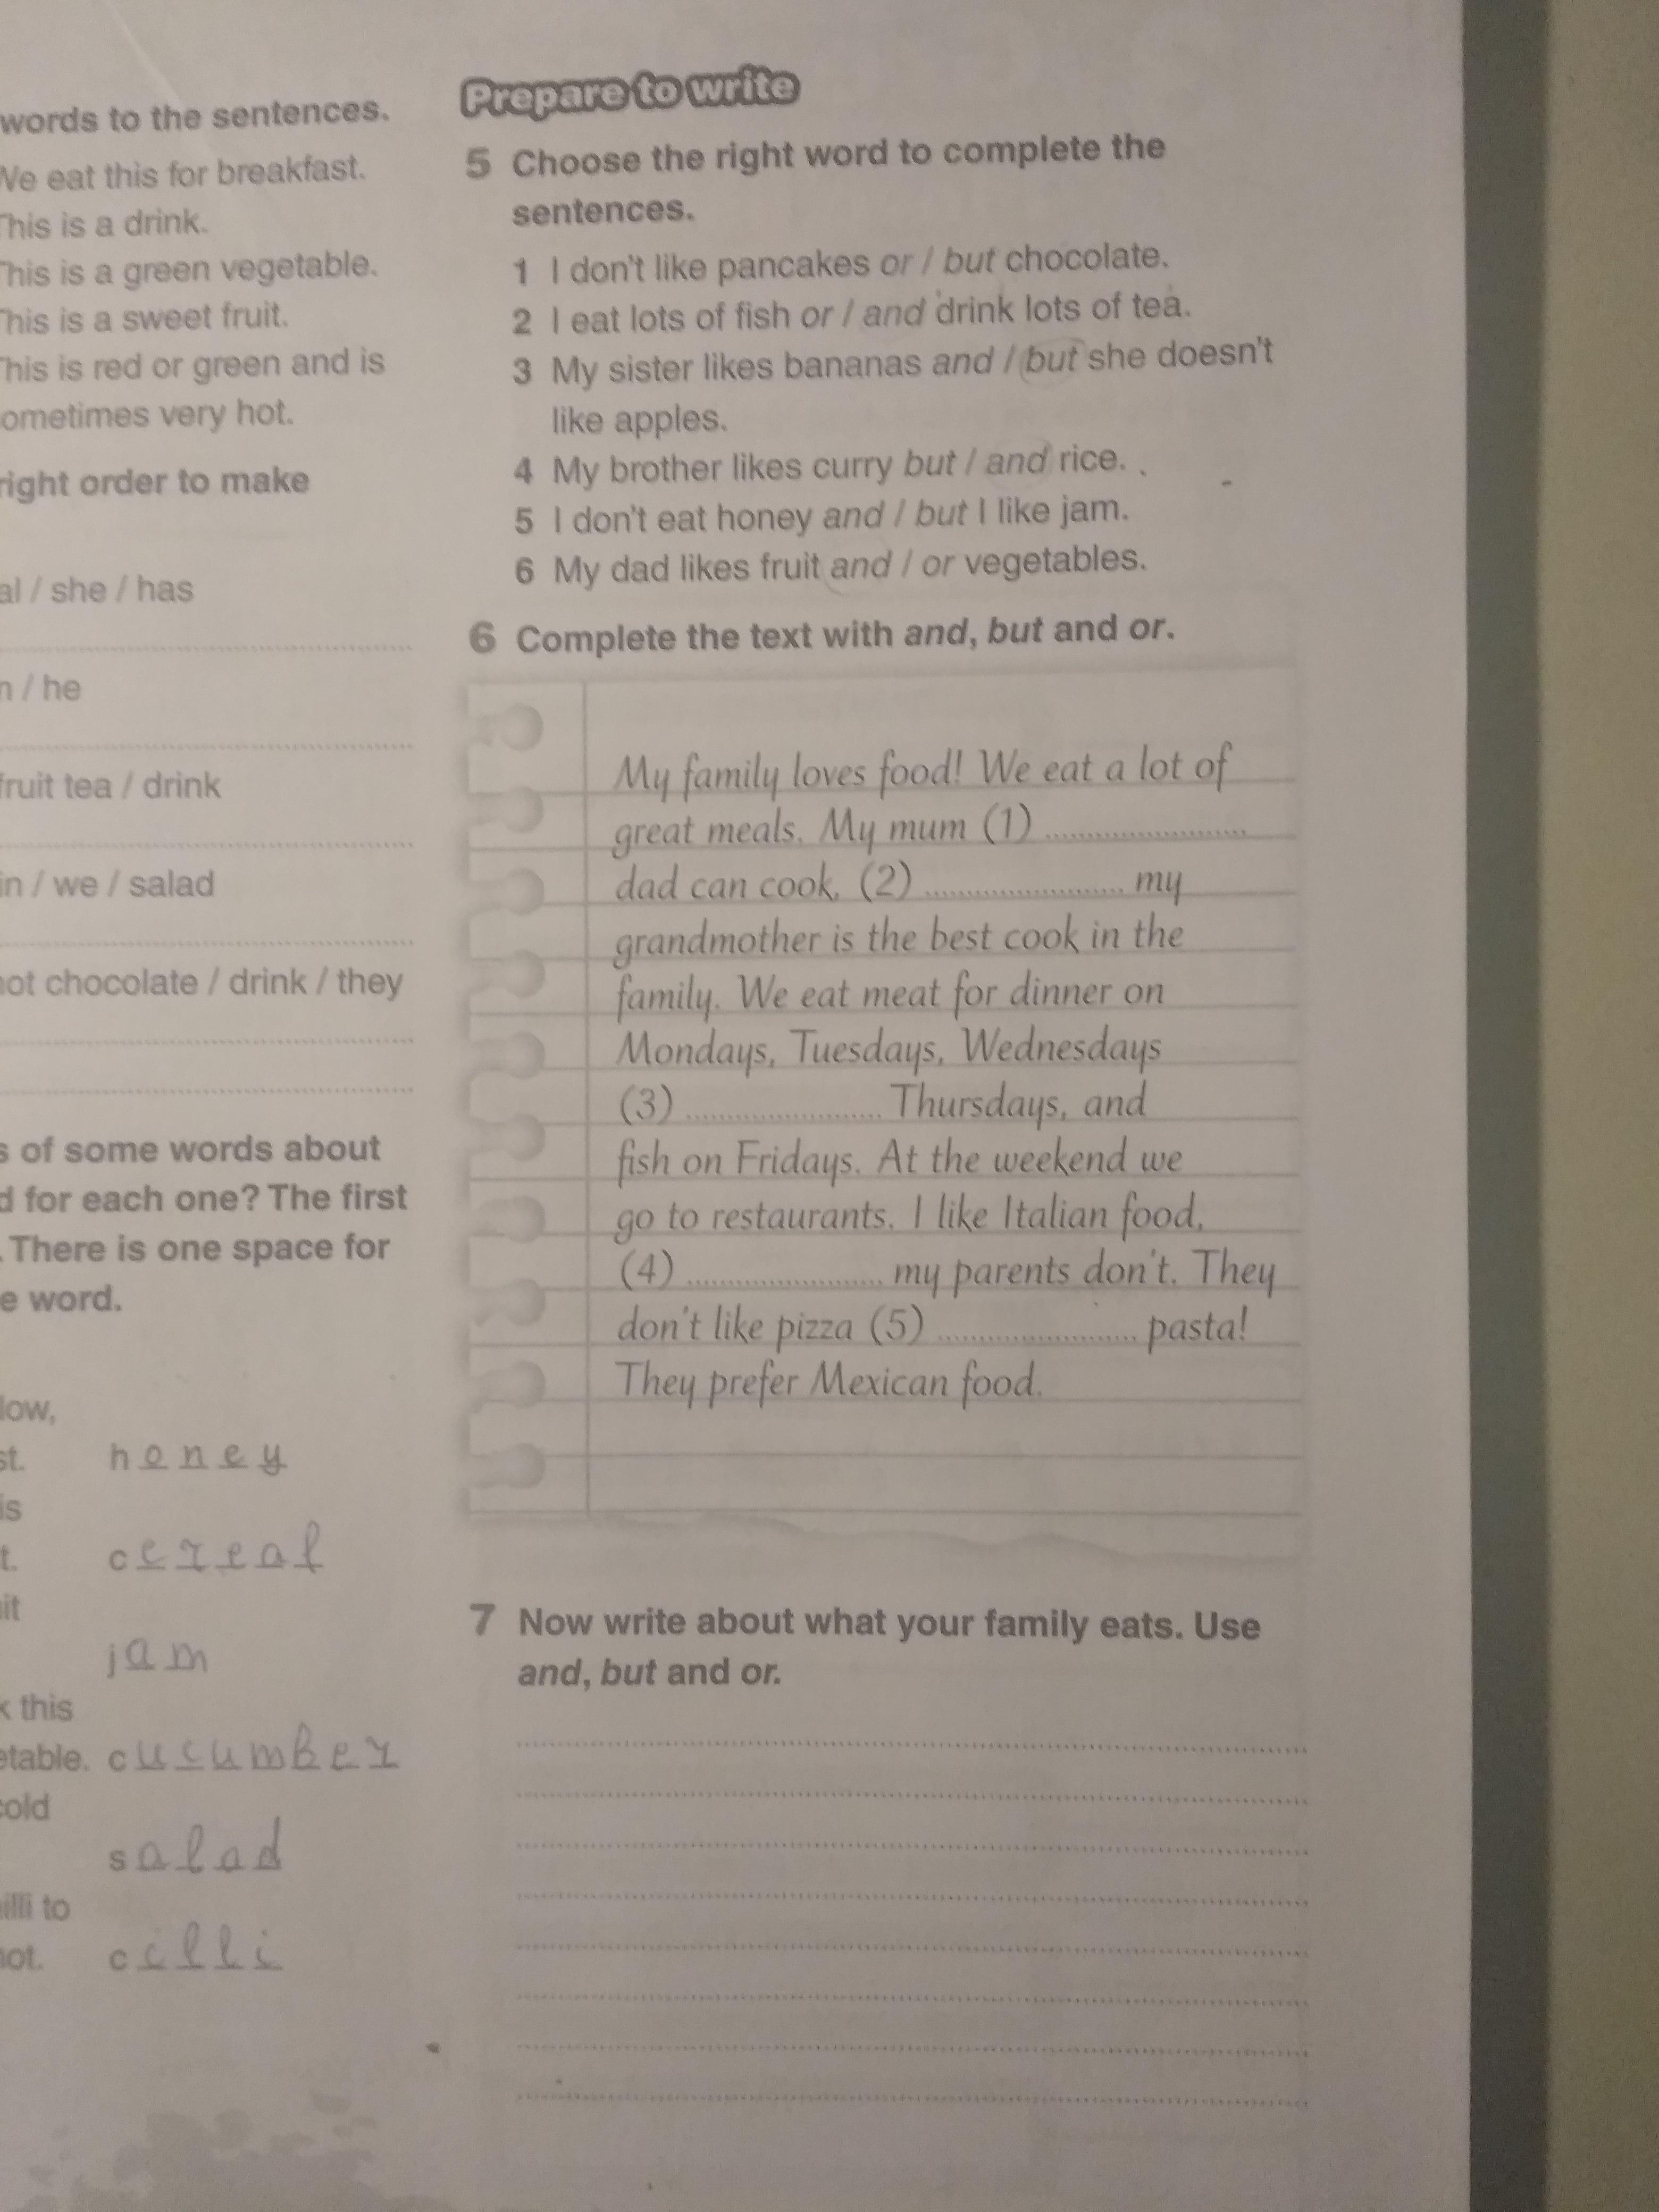 words to the sentences.
We eat this for breakfast.
This is a drink.
This is a green vegetable.
This is a sweet fruit.
This is red or green and is
sometimes very hot.
right order to make
/ she / has
/ he
fruit tea / drink
in / we / salad
hot chocolate / drink / they
of some words about
for each one? The first
. There is one space for
word.
honey
cereal
jam
this
cucumber
cold
salad
to
cilli
Prepare to write
5 Choose the right word to complete the
sentences.
1 I don't like pancakes or / but chocolate.
2 I eat lots of fish or / and drink lots of tea.
3 My sister likes bananas and / but she doesn't
like apples.
4 My brother likes curry but / and rice.
5 I don't eat honey and / but I like jam.
6 My dad likes fruit and / or vegetables.
6 Complete the text with and, but and or.
My family loves food! We eat a lot of
great meals. My mum (1) ........................
dad can cook, (2) ........................ my
grandmother is the best cook in the
family. We eat meat for dinner on
Mondays, Tuesdays, Wednesdays
(3) ........................ Thursdays, and
fish on Fridays. At the weekend we
go to restaurants. I like Italian food,
(4) ........................ my parents don't. They
don't like pizza (5) ........................ pasta!
They prefer Mexican food.
7 Now write about what your family eats. Use
and, but and or.